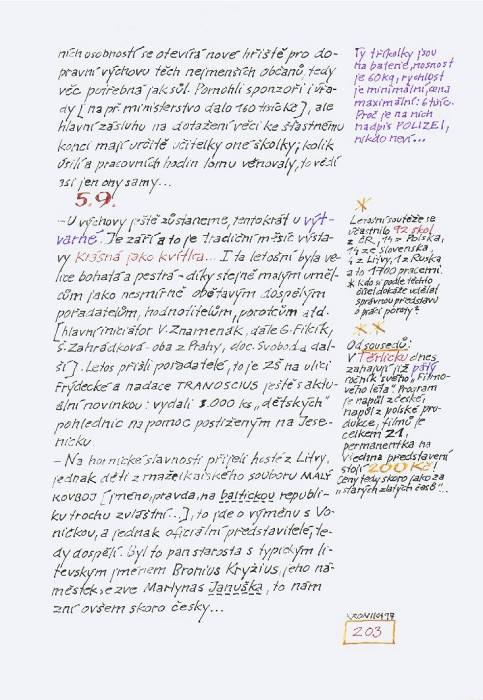 ních osobností se otevírá nové hřiště pro do-
pravní výchovu těch nejmenších občanů, tedy
věc potřebná jak sůl. Pomohli sponzoři i úřa-
dy [např. ministerstvo dalo 160 tisíc Kč], ale
hlavní zásluhu na dotažení věci ke šťastnému
konci mají určitě učitelky oné školky; kolik
úsilí a pracovních hodin tomu věnovaly, to vědí
asi jen ony samy...
5.9.
– U výchovy ještě zůstaneme, tentokrát u výt-
varné. Je září a to je tradiční měsíc výsta-
vy Krásná jako kvítka... I ta letošní byla ve-
lice bohatá a pestrá – díky stejně malým uměl-
cům jako nesmírně obětavým dospělým
pořadatelům, hodnotitelům, porotcům atd.
[hlavní iniciátor V. Znamenák, dále G. Filcik,
Š. Zahrádková – oba z Prahy, doc. Svoboda a dal-
ší]. Letos přišli pořadatelé, to je ZŠ na ulici
Frýdecké a nadace TRANOSCIUS ještě s aktu-
ální novinkou: vydali 3.000 ks „dětských“
pohlednic na pomoc postiženým na Jese-
nicku.
– Na hornické slavnosti přijeli hosté z Litvy,
jednak děti z mažeikaiského souboru MALÝ
KOVBOJ [jméno, pravda, na baltickou republi-
ku trochu zvláštní...], to jde o výměnu s Vo-
ničkou, a jednak oficiální představitelé, te-
dy dospělí. Byl to pan starosta s typickým li-
tevským jménem Bronius Kryžius, jeho ná-
městek se zve Martynas Januška, to nám
zní ovšem skoro česky...
Ty tříkolky jsou
na baterie, nosnost
je 60 kg, rychlost
je minimální, cena
maximální: 6 tisíc.
Proč je na nich
nadpis POLIZEI,
nikdo neví...
Letošní soutěže se
účastnilo 92 škol
z ČR, 14 z Polska,
14 ze Slovenska,
4 z Litvy, 1 z Ruska
a to 1700 pracemi.
Kdo si podle těchto
čísel dokáže udělat
správnou představu
o práci poroty?
Od sousedů:
V Těrlicku dnes
zahajují již pátý
ročník svého „Filmo-
vého léta“. Program
je napůl z české,
napůl z polské pro-
dukce, filmů je
celkem 21,
permanentka na
všechna představení
stojí 200 Kč!
Ceny tedy skoro jako za
„starých zlatých časů“...
203